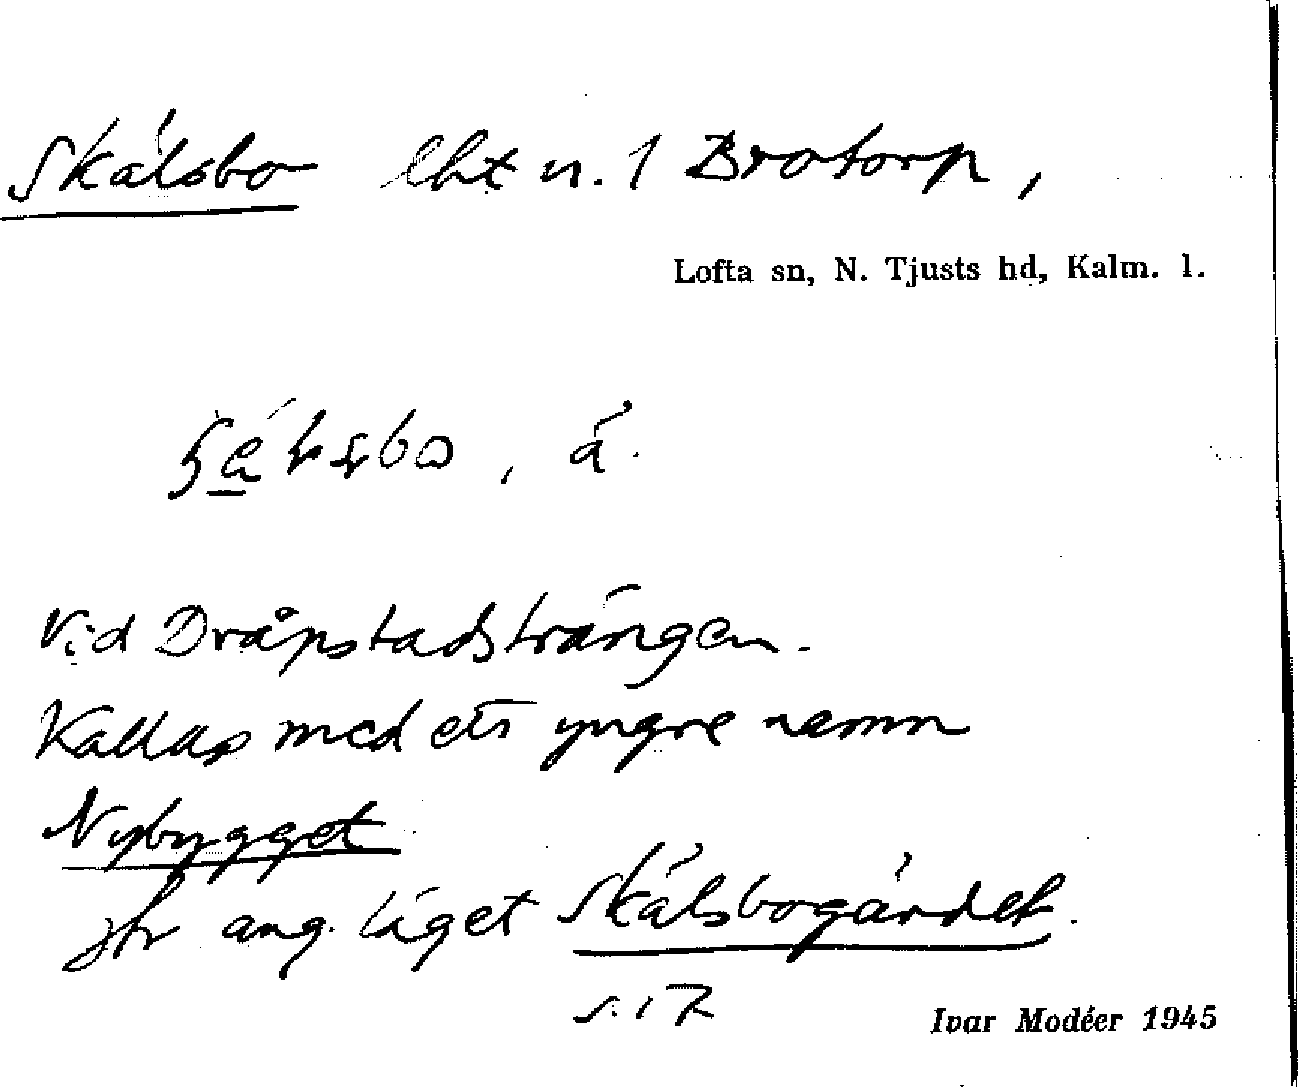 Skälsbo lht u. 1 Brotorp,
Lofta sn, N. Tjusts hd, Kalm. l.
, á.
Vid Dråpstadsträngen.
Kallas med ett yngre namn
Nybygget
jfr ang. läget Skälsbogärdet.
s. 17
Ivar Modéer 1945